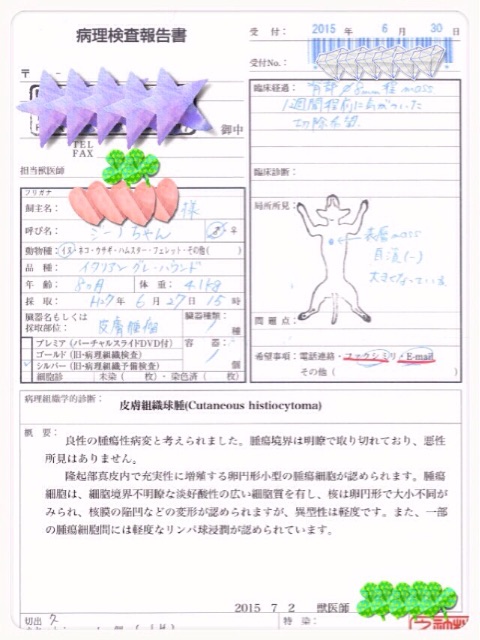 病理検査報告書
受付： 2015年 6月 30日
受付No.：
〒
御中
TEL
FAX
担当獣医師
臨床経過： 背部 φ8mm程 mass
1週間程前に気がついた
切除希望
臨床診断：
フリガナ
飼主名： 様
呼び名： ジーノちゃん ♂・♀
動物種： イヌ・ネコ・ウサギ・ハムスター・フェレット・その他（ ）
品種： イタリアングレーハウンド
年齢： 8ヵ月 体重： 4.1kg
採取： H27年 6月 27日 15時
臓器名もしくは
採取部位： 皮膚腫瘤
臓器種類： 1種
プレミア（バーチャルスライドDVD付）
ゴールド（旧・病理組織検査）
シルバー（旧・病理組織予備検査）
細胞診 未染（ 枚）・染色済（ 枚）
容器： 1個
局所所見：
表層mass
自潰(-)
大きくなっている
問題点：
希望事項：電話連絡・ファクシミリ・E-mail
その他（ ）
病理組織学的診断： 皮膚組織球腫(Cutaneous histiocytoma)
概要： 良性の腫瘍性病変と考えられました。腫瘍境界は明瞭で取り切れており、悪性
所見はありません。
隆起部真皮内で充実性に増殖する卵円形小型の腫瘍細胞が認められます。腫瘍
細胞は、細胞境界不明瞭な淡好酸性の広い細胞質を有し、核は卵円形で大小不同が
みられ、核膜の陥凹などの変形が認められますが、異型性は軽度です。また、一部
の腫瘍細胞間には軽度なリンパ球浸潤が認められています。
2015 7 2 獣医師
切出
特染：